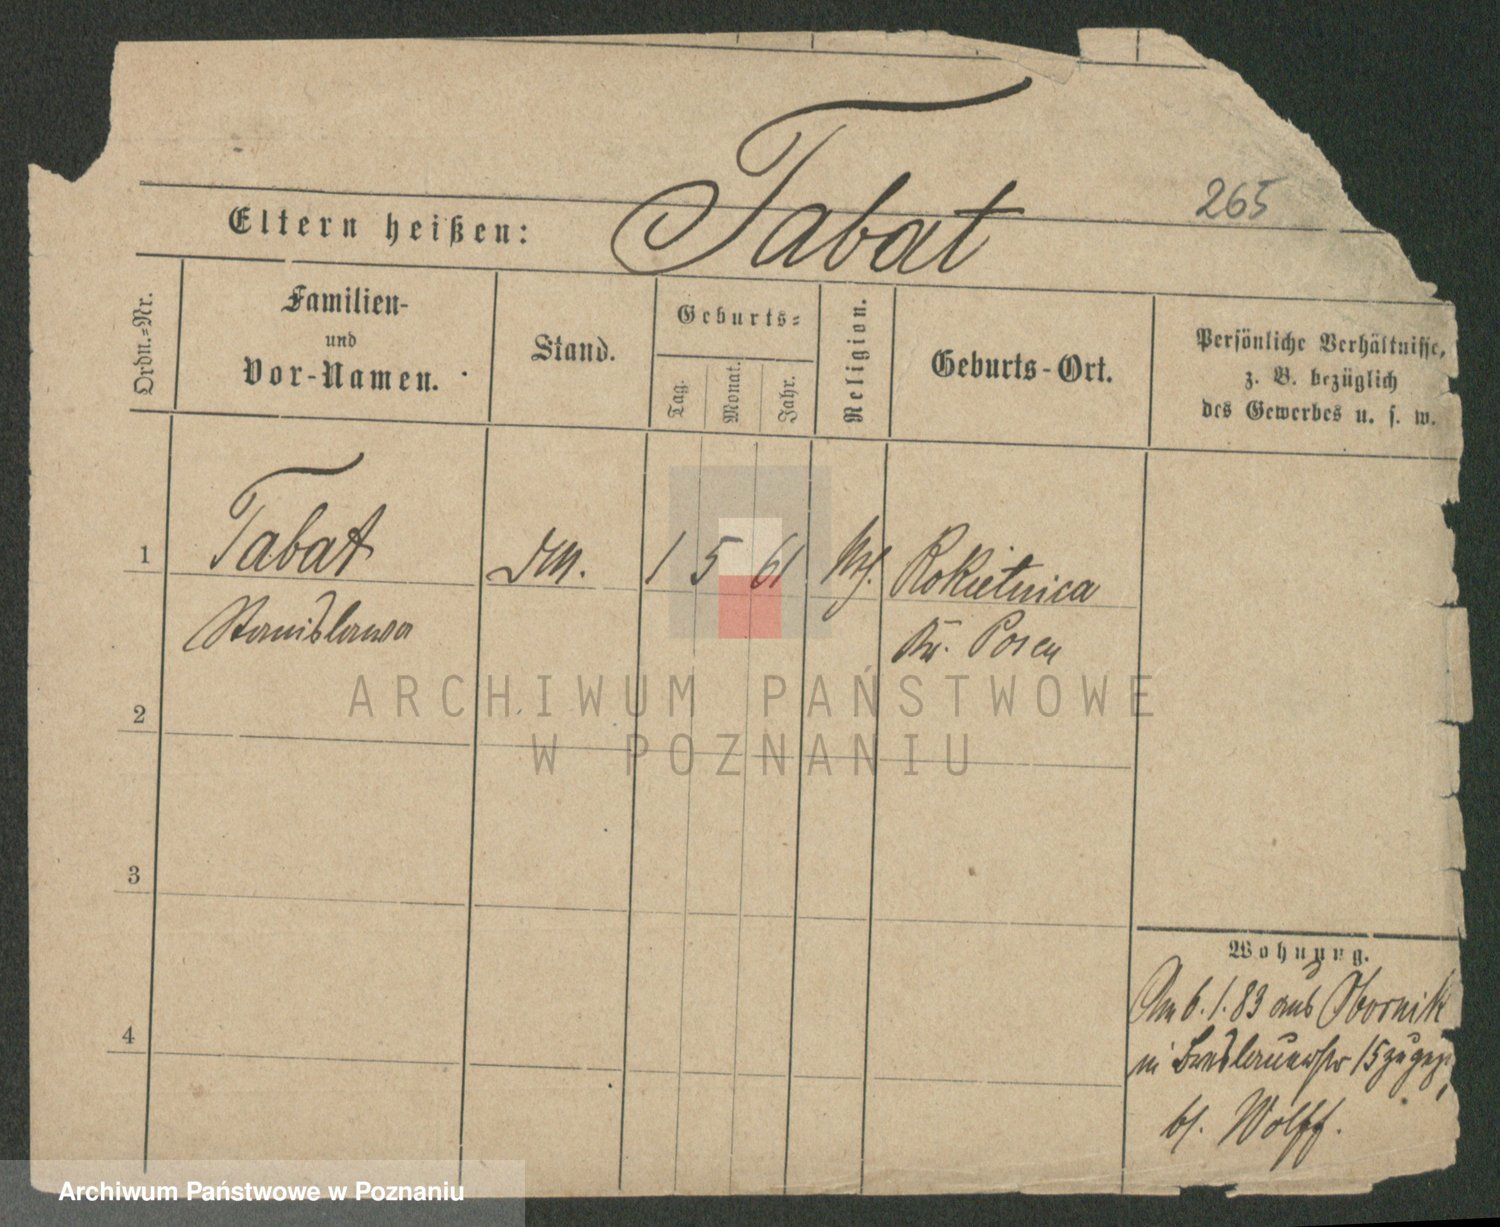 Tabat
265
Eltern heißen:
Ordn.=Nr.
Familien-
und
Vor-Namen.
Stand.
Geburts=
Tag.
Monat.
Jahr.
Religion.
Geburts-Ort.
Persönliche Verhältnisse,
z. B. bezüglich
des Gewerbes u. s. w.
1 Tabat 1 5 61 Rokietnica
Stanislawa Kr. Posen
2
3
4
Wohnung.
Am 6.1.83 aus Obornik
in Breslauerstr 15 zugez
bei Wolff.
ARCHIWUM PAŃSTWOWE
W POZNANIU
Archiwum Państwowe w Poznaniu